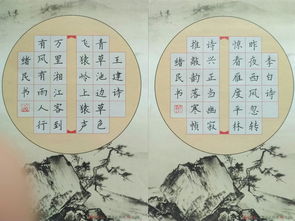 李白诗
昨夜西风忽转
惊看雁度平林
诗兴正当幽寂
推敲韵落寒
绪民书
王建诗
青草池边草色
飞猿岭上猿声
万里湘江客到
有风有雨人行
绪民书